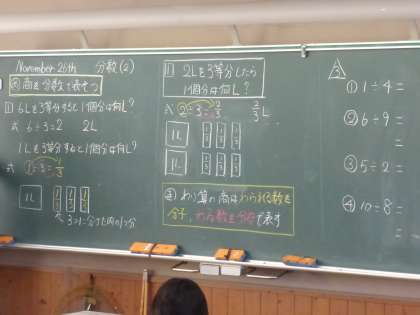 November 26th 分数(2)
商を分数で表そう
6Lを3等分すると1個分は何L?
式 6÷3=2 2L
1Lを3等分すると1個分は何L?
式 1÷3=1/3
1L 1/3 1/3 1/3
3つに分けた内の1つ分
2Lを3等分したら
1個分は何L?
式 2÷3=2/3 2/3L
1L 1/3 1/3 1/3
1L 1/3 1/3 1/3
わり算の商はわられる数を
分子、わる数を分母で表す
3
① 1÷4=
② 6÷9=
③ 5÷2=
④ 10÷8=